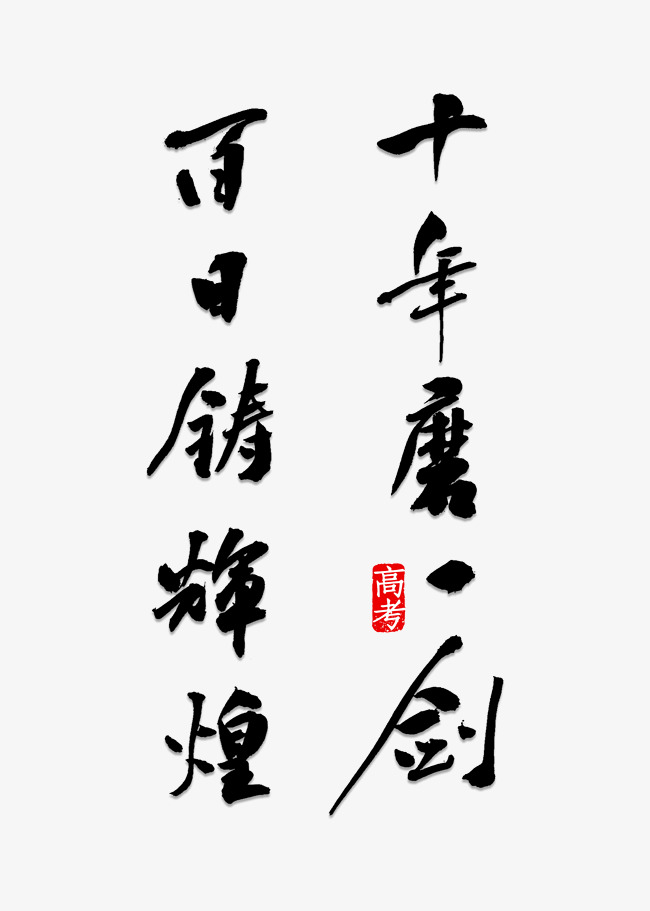 十年磨一剑
百日铸辉煌
高考